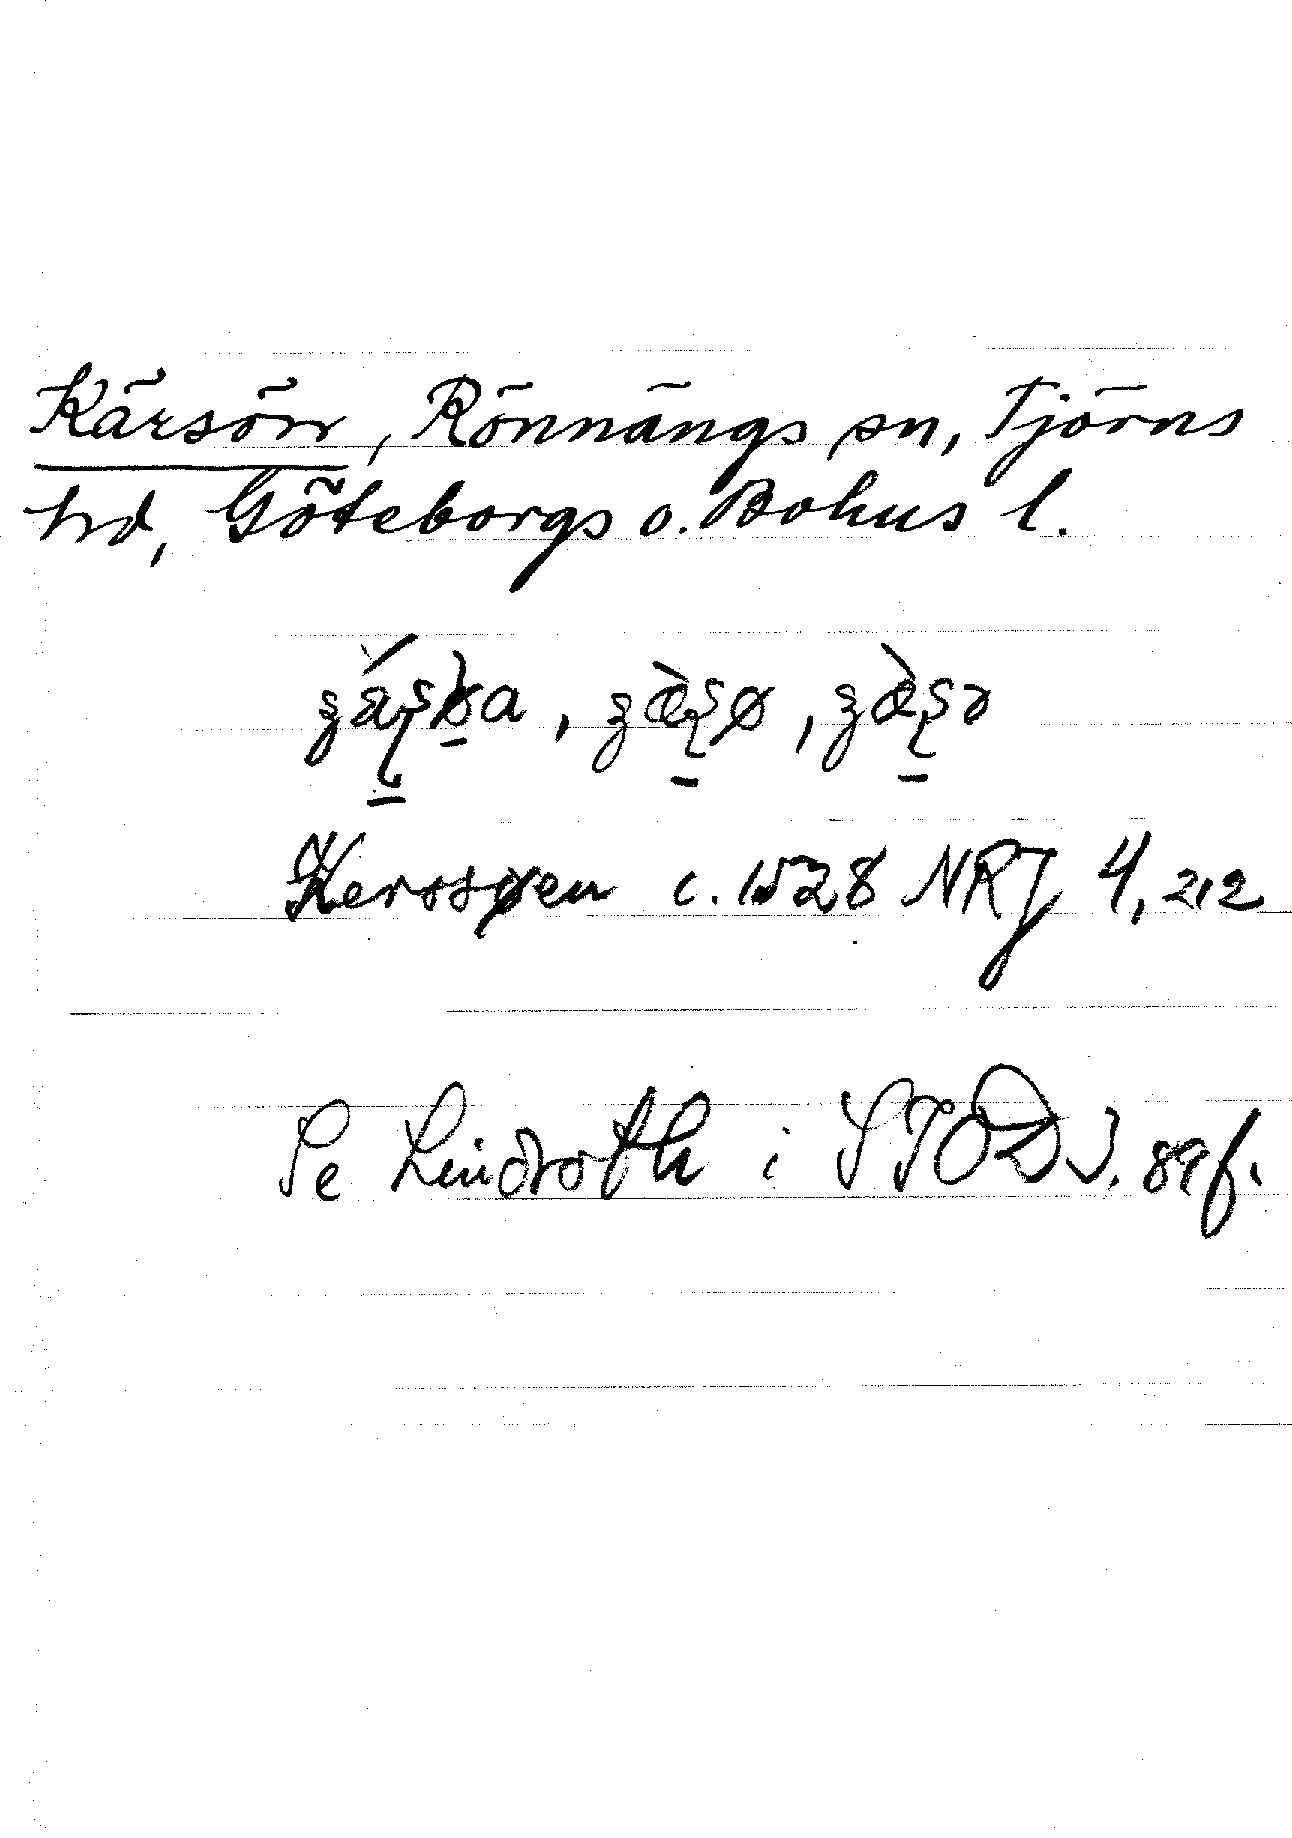 Kärsön, Rönnängs sn, Tjörns
hd, Göteborgs o. Bohus l.
Kerssøen c. 1528 NRJ 4, 212
Se Lindroth i STOD 1. 89 f.